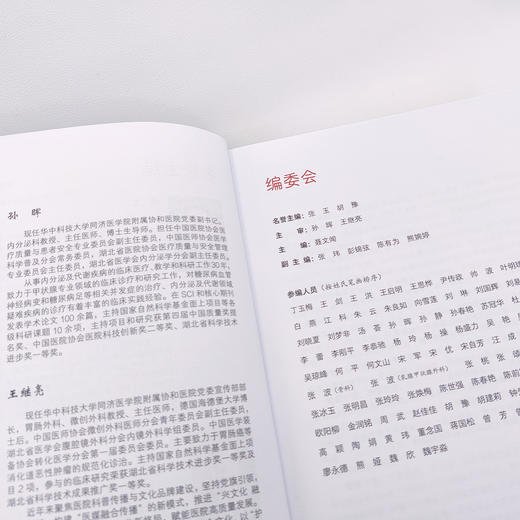 孙　晖
现任华中科技大学同济医学院附属协和医院党委副书记。
内分泌科教授、主任医师、博士生导师。担任中国医院协会医
疗质量与患者安全专业委员会副主任委员，中国医师协会医学
科学普及分会常务委员，湖北省医院协会医疗质量与安全管理
专业委员会主任委员，湖北省医学会内分泌学分会副主任委员。
从事内分泌及代谢疾病的临床医疗、教学和科研工作30年，
致力于甲状腺专业领域的临床诊疗和研究工作，对糖尿病血管
神经病变和糖尿病足等相关并发症的治疗、内分泌及代谢领域
疑难疾病的诊疗有着丰富的临床实践经验。在 SCI 和核心期刊
发表学术论文 100 余篇。主持国家自然科学基金面上项目等各
级科研课题 10 余项，主持项目和研究获第四届中国质量奖提
名奖、中国医院协会医院科技创新奖二等奖、湖北省科学技术
进步奖一等奖。
王继亮
现任华中科技大学同济医学院附属协和医院党委宣传部部
长，胃肠外科、微创外科教授、主任医师，德国海德堡大学博
士后。中国医师协会微创外科医师分会青年委员会副主任委员，
湖北省医学会腹腔镜外科分会内镜外科学组委员。中国医学装
备协会转化医学分会第一届委员会委员。主要致力于胃肠癌等
消化道恶性肿瘤的规范化诊治。主持国家自然科学基金面上项
目 2 项，参与的临床研究荣获湖北省科学技术进步奖一等奖及
湖北省科学技术成果推广奖一等奖。
近年来聚焦医院科普传播与文化品牌建设，坚持党旗引领，
构建“医媒融合传播”的新模式，推进“炎文化 融
赋能医院高质量
文化，以“护
编委会
名誉主编：张　玉　胡　豫
主　审：孙　晖　王继亮
主　编：聂文闻
副 主 编：张　玮　彭锦弦　陈有为　熊婉婷
参编人员（按姓氏笔画排序）
丁玉梅　王　剑　王　洪　王启明　王思桦　尹传政　帅　波　叶明
白　燕　江　科　朱　云　朱良如　向雪莲　刘　琳　刘国辉　刘
刘晓夏　刘梦非　汤　荟　孙　晖　孙　静　孙春艳　苏冠华　杜
李　蕾　李刚平　李恭驰　杨　玲　杨　操　杨盛力　吴　艳
吴琼峰　何　平　何文山　宋　军　宋　优　宋自芳　汪　宏
张　波（骨科）　张　波（乳腺甲状腺外科）　张　桃　张　颂
张冰玉　张明昌　张玲玲　张焕梅　陈世强　陈春艳　陈前
欧阳柳　金润铭　周　武　赵佳佳　胡　豫　胡建莉　钟
高　颖　陶　娟　黄　玮　董念国　蒋国松　曾　芳　曾
廖永德　熊　娅　魏　欣　魏宇淼